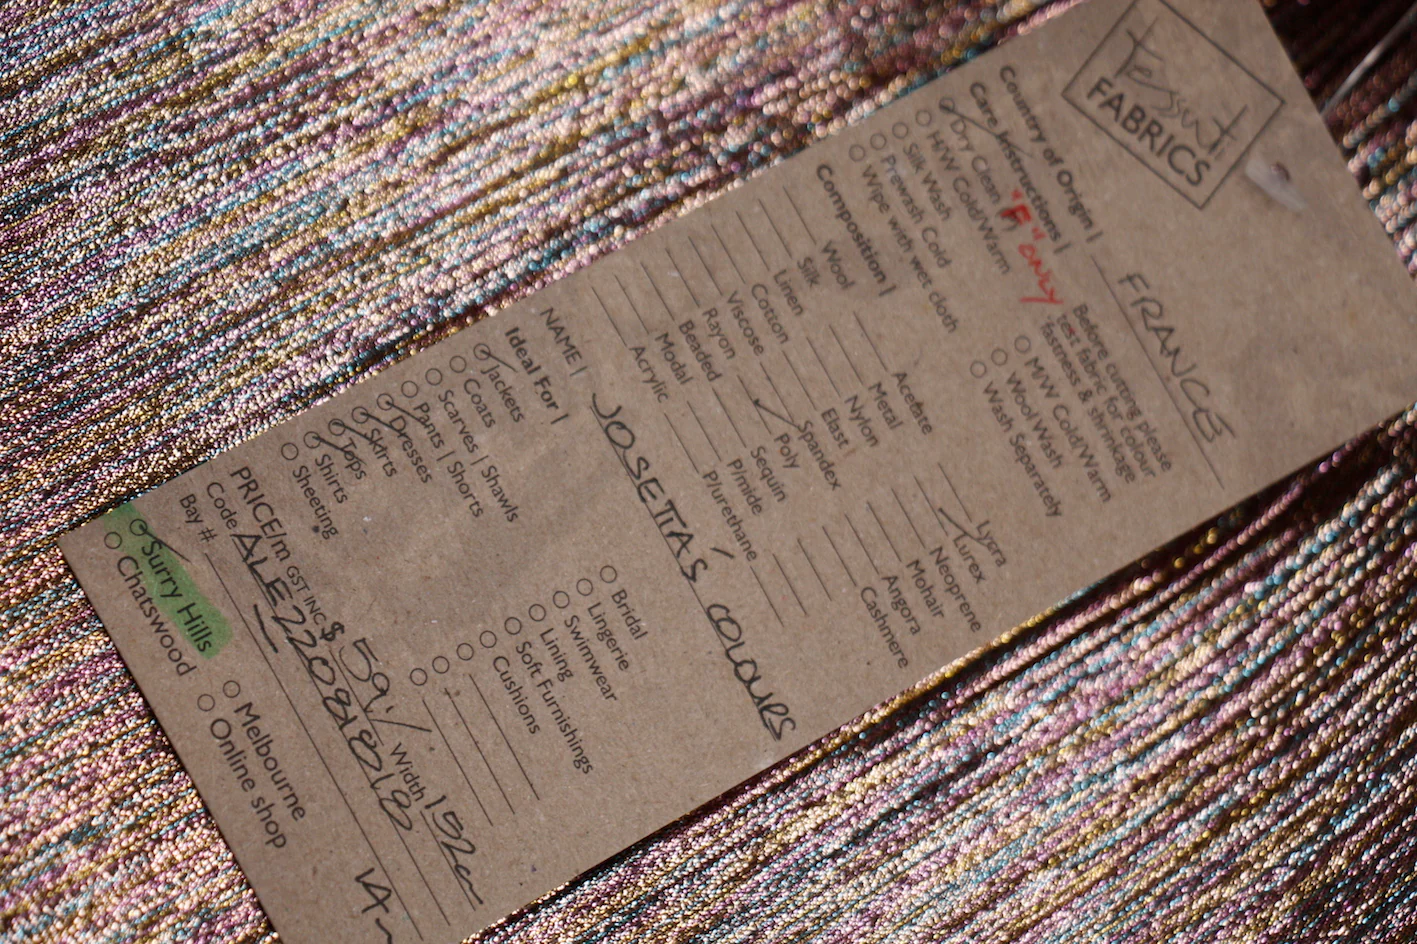 Tessuti
FABRICS
Country of Origin | FRANCE
Care Instructions |
Dry Clean "F" ONLY
H/W Cold/Warm
Silk Wash
Prewash Cold
Wipe with wet cloth
Before cutting please
test fabric for colour
fastness & shrinkage
M/W Cold/Warm
Wool Wash
Wash Separately
Composition |
Wool
Silk
Linen
Cotton
Viscose
Rayon
Beaded
Modal
Acrylic
Acetate
Metal
Nylon
Elast
Spandex
Poly
Sequin
P/mide
P/urethane
Lycra
Lurex
Neoprene
Mohair
Angora
Cashmere
NAME | JOSETTA'S COLOURS
Ideal For |
Jackets
Coats
Scarves | Shawls
Pants | Shorts
Dresses
Skirts
Tops
Shirts
Sheeting
Bridal
Lingerie
Swimwear
Lining
Soft Furnishings
Cushions
PRICE/m GST INC $59/ Width 152cm
Code ALE22081818
Bay #
Surry Hills
Chatswood
Melbourne
Online shop